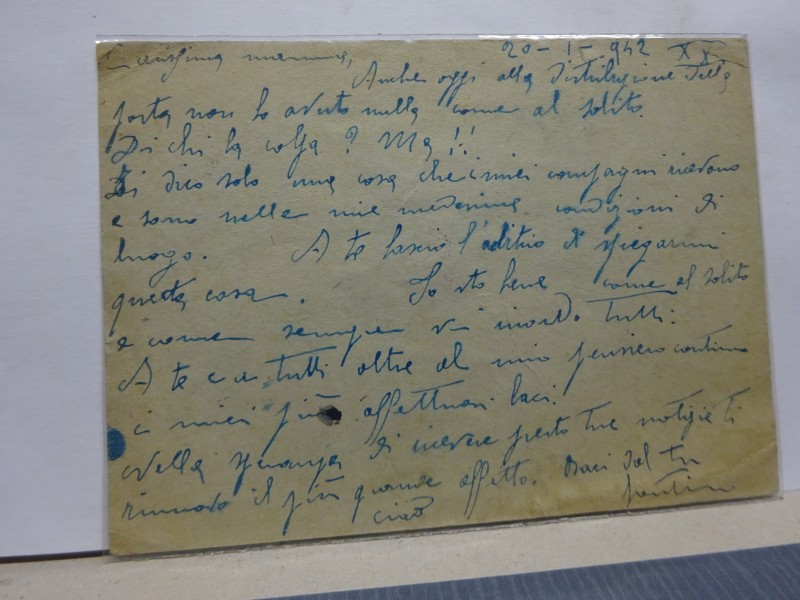 20-1-942 XX
Carissima mamma,
Anche oggi alla distribuzione della
posta non ho avuto nulla come al solito.
Di chi la colpa? Ma!!
Ti dico solo una cosa che i miei compagni ricevono
e sono nelle mie medesime condizioni di
luogo. A te lascio l'arbitrio di spiegarmi
questa cosa. Io sto bene come al solito
e come sempre vi ricordo tutti.
A te e a tutti oltre al mio pensiero continuo
i miei più affettuosi baci.
Nella speranza di ricevere presto tue notizie ti
rinnovo il più grande affetto. Baci dal tuo
ciao